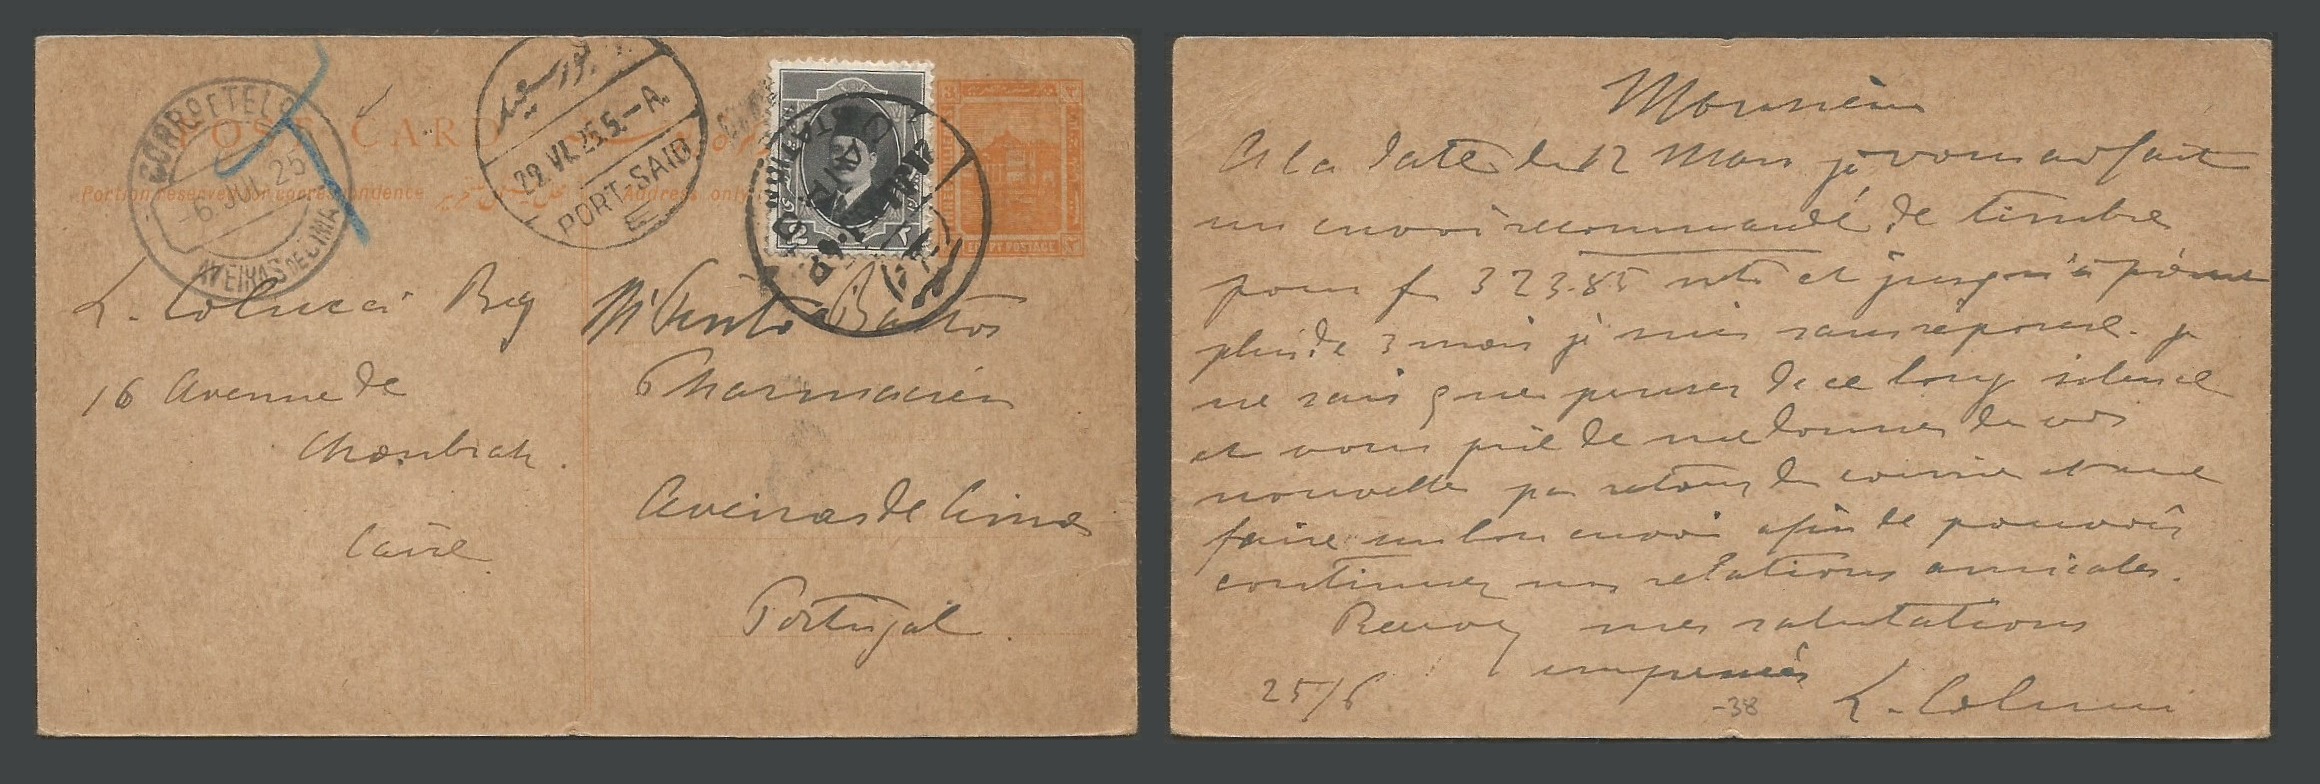 POST CARD
Portion reserved for correspondence
Address only
CORRO E TELO
-6 JUL 25
AVEIRAS DE CIMA
بورسعيد
29.VI.25.5.-A.
PORT-SAID
E
EGYPT POSTAGE
L. Colucci Bey
16 Avenue de
Choubrah.
Caire
Bastos
Pharmacien
Aveiras de Cima
Portugal.
Monsieur
A la date du 12 Mars je vous ai fait
un envoi recommandé de timbre
pour f 323.85 et jusqu'à présent
plus de 3 mois je suis sans reponse. je
ne sais que penser de ce long silence
et vous prie de me donner de vos
nouvelles par retour du courrier et me
faire un bon envoi afin de pouvoir
continuer nos relations amicales.
Recevez mes salutations
empressées
25/6
-38
L. Colucci